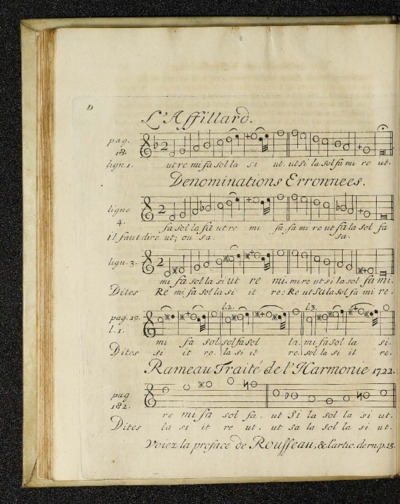 D
L'Affillard.
pag. 18. lign. 1. ut re mi fa sol la si ut. ut si la sol fa mi re ut.
Denominations Erronnees.
ligne 4. fa sol la fa ut re mi fa fa mi re ut fa la sol fa
il faut dire ut; ou sa. sa.
lign. 3. mi fa sol la si ut re mi. mi re ut si la sol fa mi.
Dites Re mi fa sol la si ut re: Re ut si la sol fa mi re.
l.2. l.3.
pag. 19. l. 1. mi fa sol. sol fa sol la. mi fa sol la si.
Dites si ut re. la si ut re. sol la si ut re.
Rameau Traité de l'Harmonie 1722.
pag 182. re mi fa sol fa. ut Si la sol la si ut.
Dites la si ut re ut. ut sa la sol la si ut.
Voiez la preface de Rousseau, & l'artic. dern p. 25.